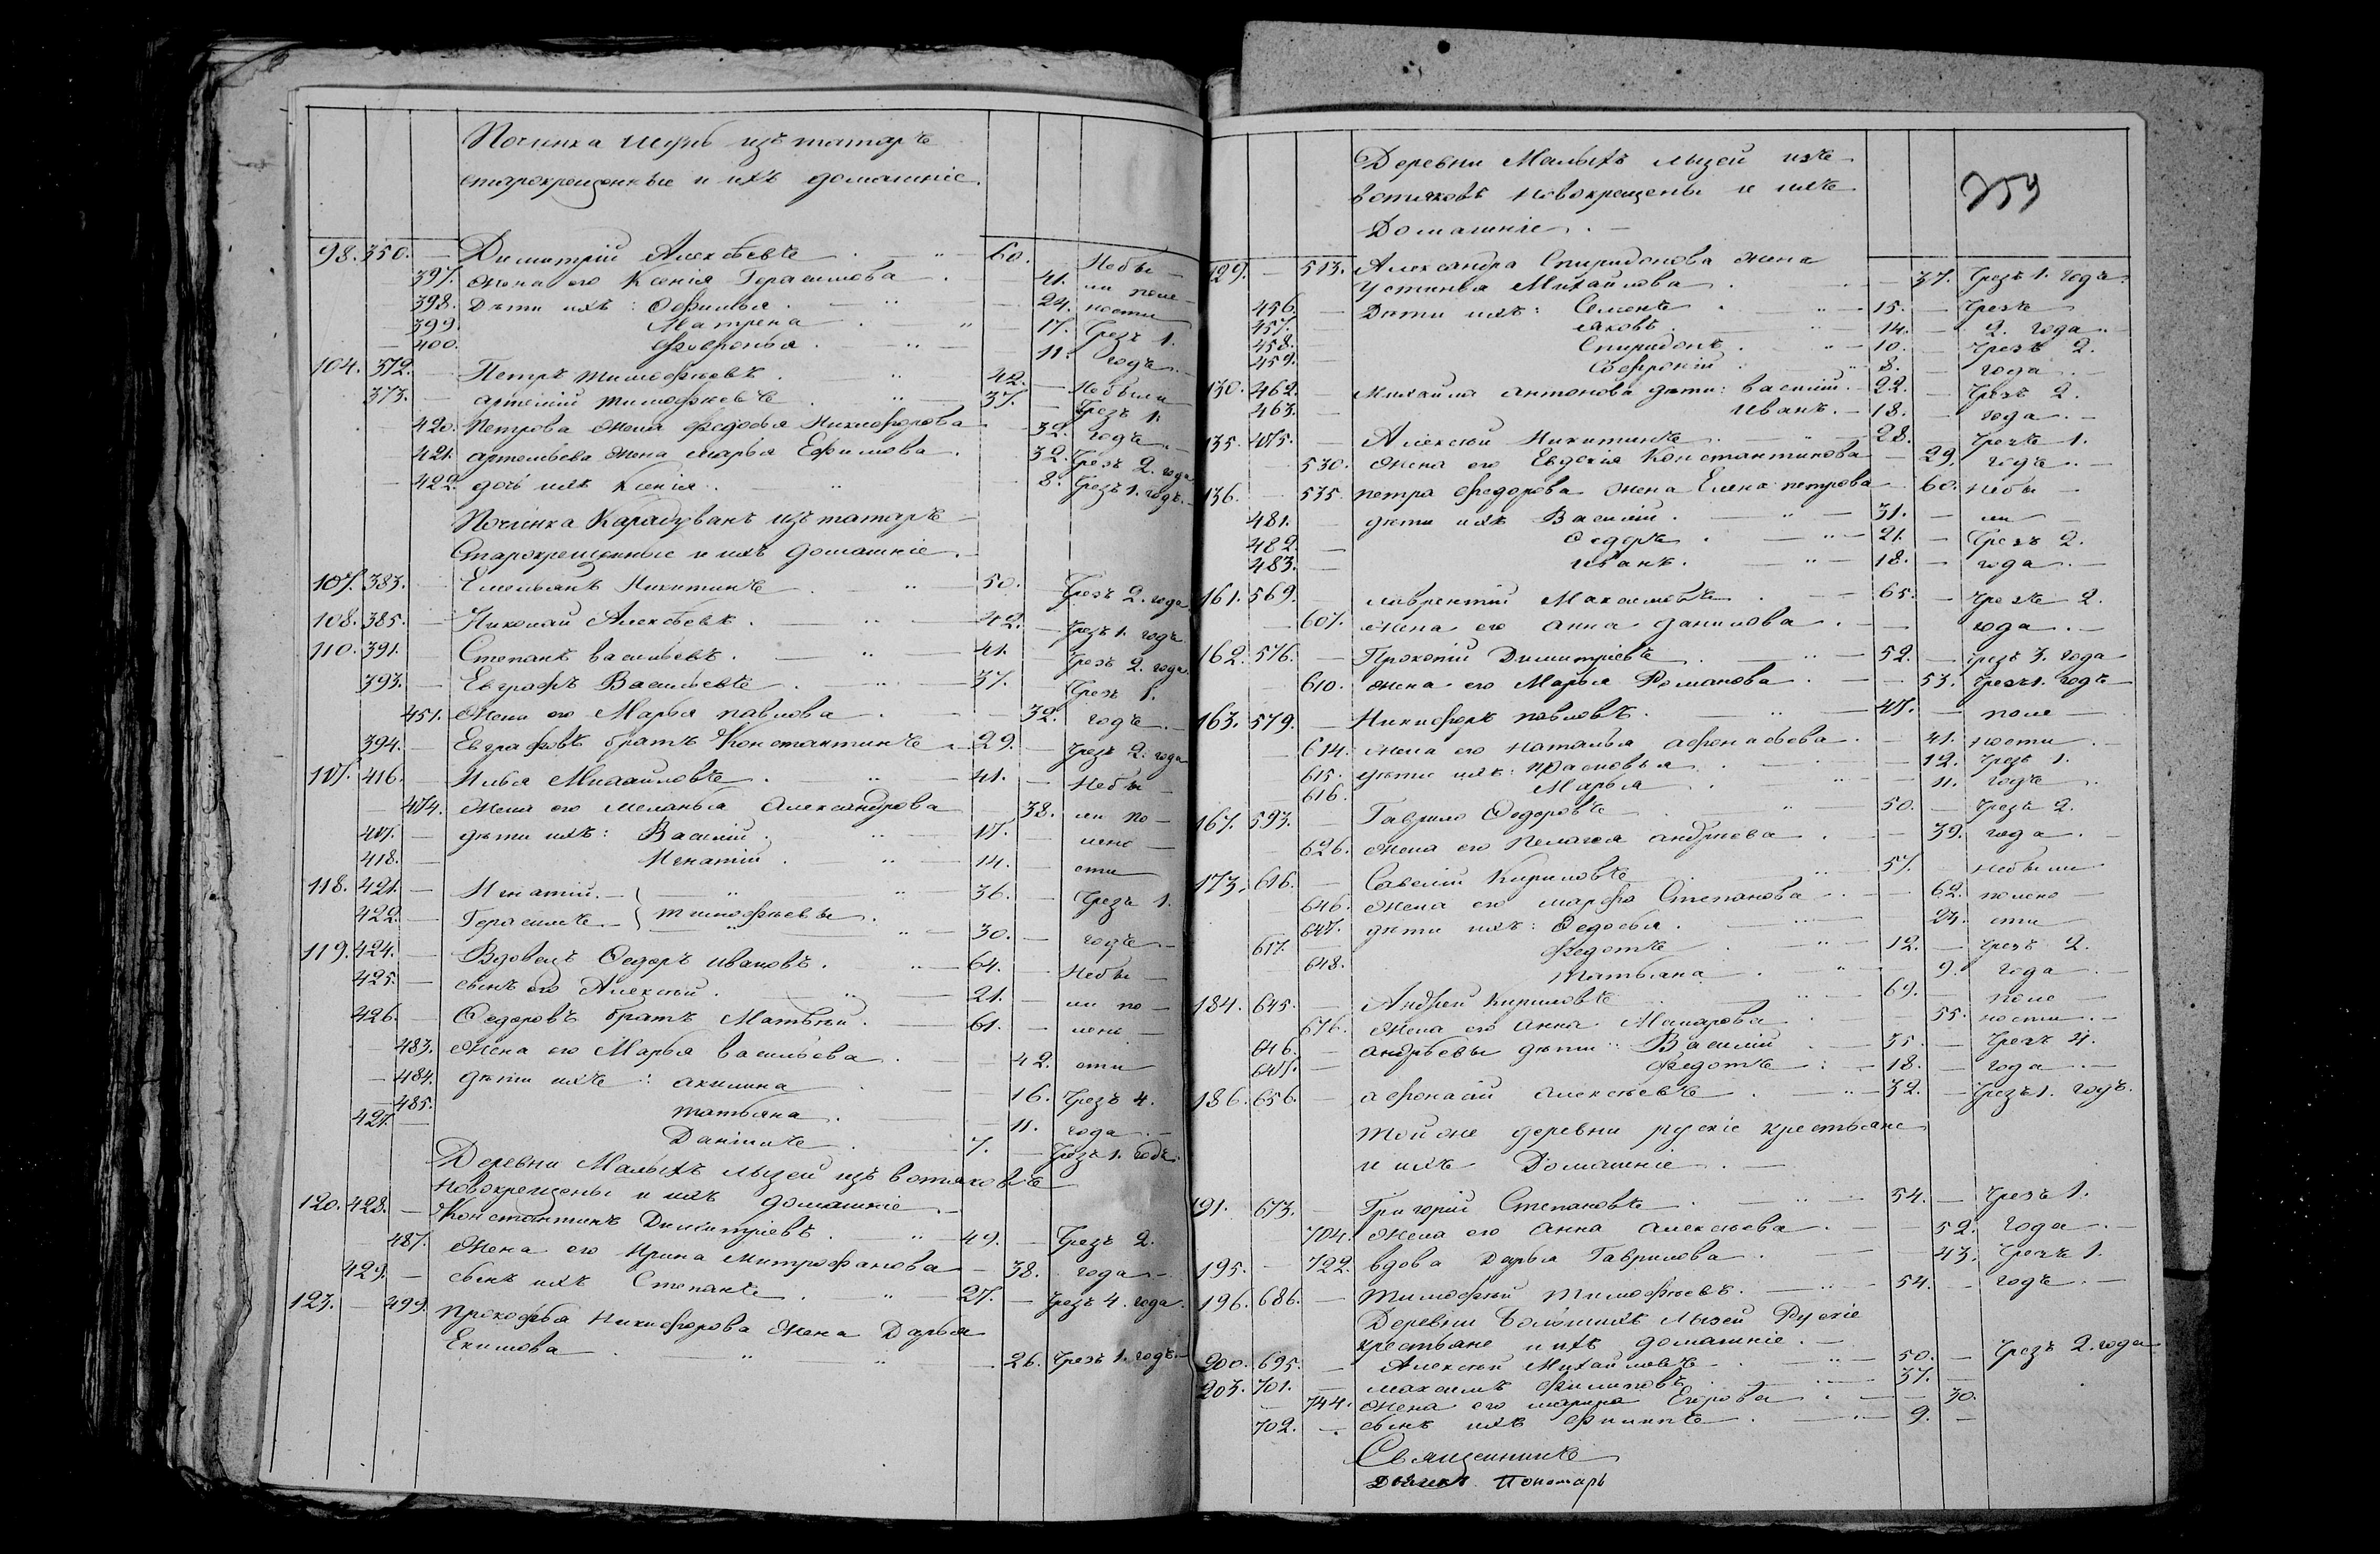 Починка Шунь изъ татаръ
старокрещенные и ихъ домашніе.
98. 350. — Димитрій Алексѣевъ . „ — 60. — Небы —
397. жена его Ксенія Герасимова . 41. ли поле —
398. Дѣти ихъ: Офимья . — „ 24. ности
399. Матрена . „ 17. Чрезъ 1.
400. Февронья . — „ — 11. годъ. —
104. 372. — Петръ Тимофѣевъ . — „ 42. — Небыли
373. Артемій Тимофѣевъ . „ — 37. — Чрезъ 1.
420. Петрова жена Федосья Никифорова — 32. годъ. —
421. Артемьева жена Марья Ефимова . 32. Чрезъ 2. года
422. дочь ихъ Ксенія . — „ 8. Чрезъ 1. годъ. —
Починка Карадуванъ изъ татаръ
Старокрещенные и ихъ домашніе. —
107. 383. — Емельянъ Никитинъ . „ — 50. Чрезъ 2. года
108. 385. — Николай Алексѣевъ . — „ — 42. — Чрезъ 1. годъ
110. 391. — Степанъ Васильевъ . — „ — 41. Чрезъ 2. года
393. — Евграфъ Васильевъ . „ — 37. Чрезъ 1.
451. Жена его Марья Павлова . — 32. годъ. —
394. — Евграфовъ братъ Константинъ — 29. — Чрезъ 2. года
117. 416. — Илья Михайловъ . „ — 41. — Небы —
474. Жена его Меланья Александрова 38. ли по —
417. — дѣти ихъ: Василій . „ — 17. лено —
418. — Игнатій . „ — 14. сти
118. 421. — Игнатій. — „ „ — 36. — Чрезъ 1.
422. — Герасимъ — Тимофѣевы . „ — 30. — годъ —
119. 424. — Вдовецъ Ѳедоръ Ивановъ . „ — 64. — Небы —
425. — сынъ его Алексѣй . „ — 21. — ли по —
426. — Ѳедоровъ братъ Матвѣй . — 61. — лено —
483. Жена его Марья Васильева . — 42. сти
484. дѣти ихъ: Акилина . — 16. Чрезъ 4.
485. Татьяна . — 11. года. —
427. — Даніилъ . 7. — Чрезъ 1. годъ.
Деревни Малыхъ Лызей изъ вотяковъ
новокрещены и ихъ домашніе. —
120. 428. — Константинъ Димитріевъ . „ — 49. — Чрезъ 2.
487. Жена его Ирина Митрофанова — 38. года —
429. — сынъ ихъ Степанъ . „ — 27. — Чрезъ 4. года.
123. 499. Прокофья Никифорова жена Дарья
Екимова . — „ „ — 26. Чрезъ 1. годъ. —
Деревни Малыхъ Лызей изъ
вотяковъ новокрещены и ихъ
Домашніе . —
359
129. — 513. Александра Спиридонова жена
Устинья Михайлова . — 37. Чрезъ 1. годъ.
456. — Дѣти ихъ: Семенъ . „ — 15. — Чрезъ
457. Яковъ . — „ 14. — 2. года. —
458. Спиридонъ . „ — 10. — Чрезъ 2.
459. — Софроній . „ 8. — года. —
130. 462. Михайла Антонова дѣти: Василій. — 22. — Чрезъ 2.
463. — Иванъ. — 18. — года. —
135. 475. — Алексѣй Никитинъ . „ — 28. — Чрезъ 1.
530. Жена его Евдокія Константинова — 29. годъ. —
136. — 535. Петра Федорова жена Елена Петрова — 60. Небы —
481. — дѣти ихъ Василій . — „ — 31. — ли —
482. — Ѳедоръ . „ — 21. — Чрезъ 2.
483. — Иванъ . — „ — 18. — года. —
161. 569. Лаврентій Максимовъ . — 65. — Чрезъ 2.
607. Жена его Анна Данилова . — года. —
162. 576. — Прокопій Димитріевъ . „ — 52. — Чрезъ 3. года
610. Жена его Марья Романова . — 53. Чрезъ 1. годъ
163. 579. — Никифоръ Павловъ . — „ — 47. — поле —
614. Жена его Наталья Афонасьева . — 41. ности . —
615. дѣти ихъ: Прасковья . — 12. Чрезъ 1.
616. Марья . — 11. годъ. —
167. 593. — Гаврило Ѳедоровъ „ 50. — Чрезъ 2.
626. Жена его Пелагея Андреева . — 39. года. —
173. 616. — Савелій Кириловъ . „ 57. Небыли
646. Жена его Марфа Степанова . — 62. полено
647. дѣти ихъ: Ѳедосья . — 24. сти
617. — Федотъ . „ — 12. — Чрезъ 2.
648. Татьяна . „ 9. года. —
184. 645. — Андрей Кириловъ „ — 69. — поле —
676. Жена его Анна Макарова . — 55. ности. —
646. — Андреевы дѣти: Василій . — 35. — Чрезъ 4.
647. — Федотъ : — 18. — года. —
186. 656. — Афонасій Алексѣевъ . — „ — 32. — Чрезъ 1. годъ.
Той же деревни рускіе крестьяне
и ихъ Домашніе . —
191. 673. — Григорій Степановъ . — „ — 54. — Чрезъ 1.
704. Жена его Анна Алексѣева . — 52. года. —
195. — 722. вдова Дарья Гаврилова . — 43. Чрезъ 1.
196. 686. — Тимофей Тимофѣевъ . — „ — 54. — годъ. —
Деревни Большихъ Лызей Рускіе
крестьяне и ихъ домашніе . —
200. 695. — Алексѣй Михайловъ . „ — 50. — Чрезъ 2. года
203. 701. — Максимъ Филиповъ . — 37. —
744. Жена его Марина Егорова . — 30.
702. — сынъ ихъ Филиппъ . „ — 9. —
Священникъ
Дьячекъ Пономарь